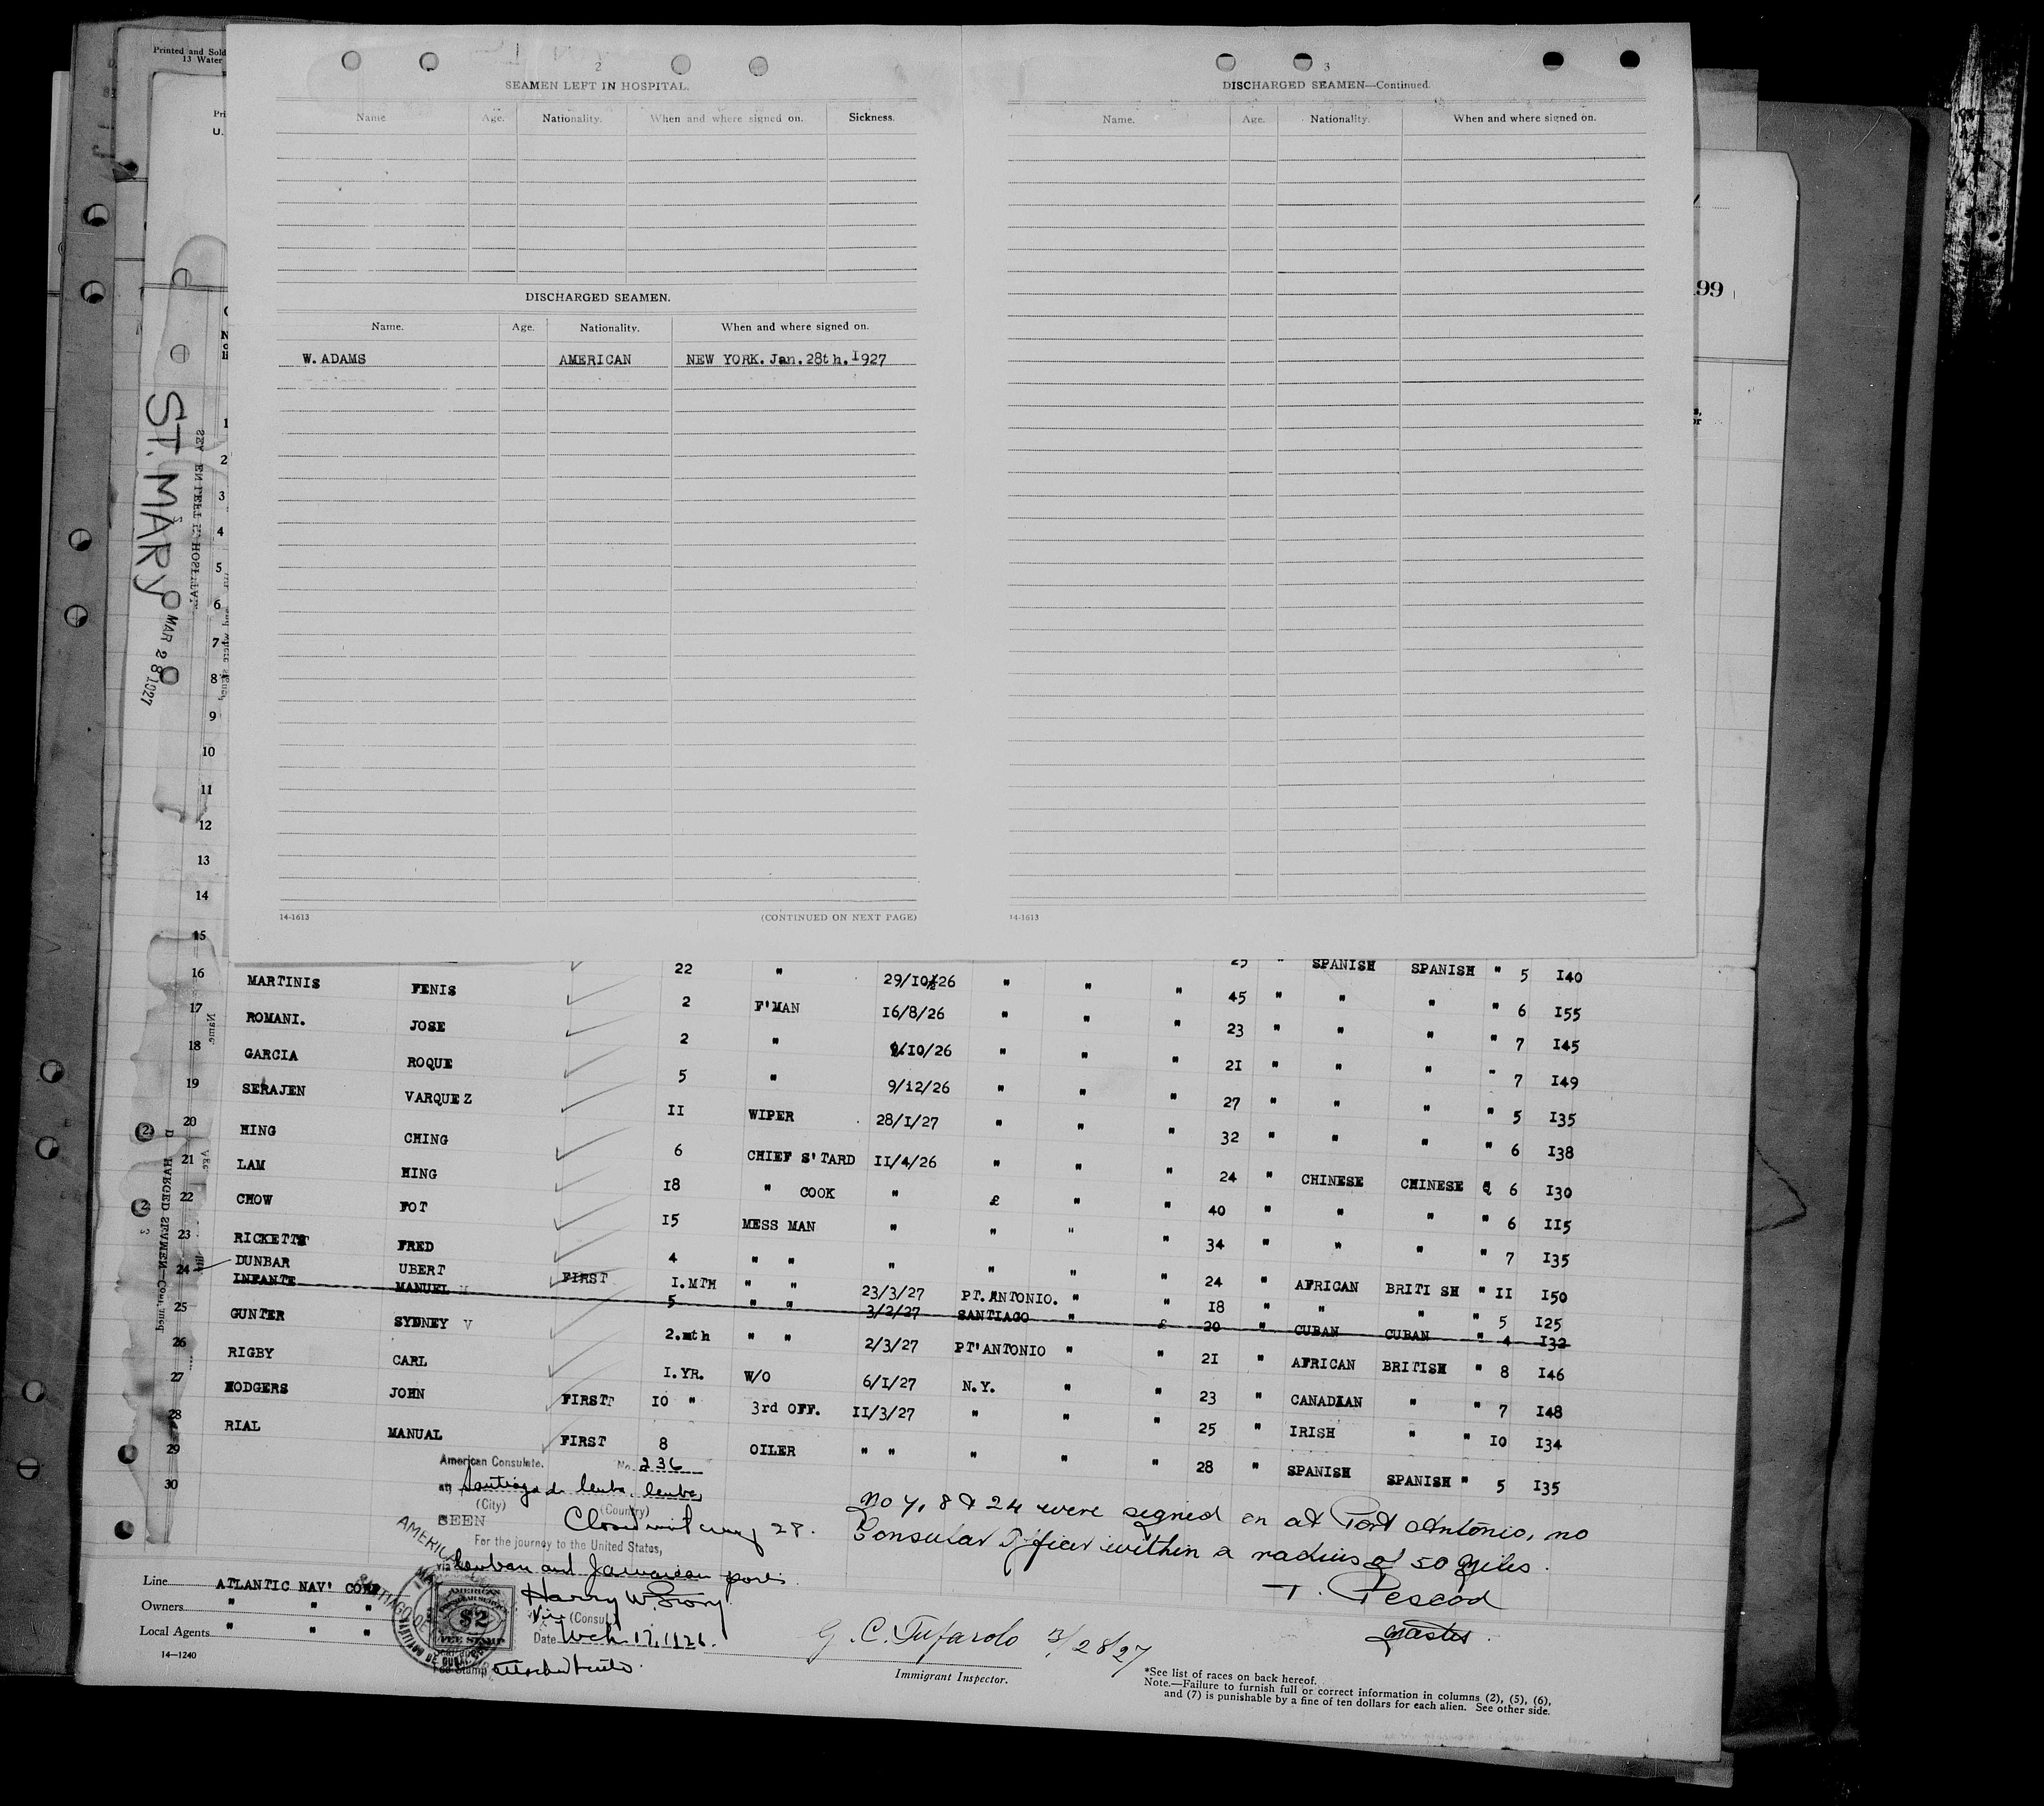 Printed and Sold
13 Water
U.
2
SEAMEN LEFT IN HOSPITAL.
Name Age. Nationality. When and where signed on. Sickness.
DISCHARGED SEAMEN.
Name. Age. Nationality. When and where signed on.
W. ADAMS AMERICAN NEW YORK. Jan. 28th. I927
14-1613 (CONTINUED ON NEXT PAGE)
3
DISCHARGED SEAMEN—Continued.
Name. Age. Nationality. When and where signed on.
14-1613
199
ST. MARY
MAR 28 1927
1
2
3
4
5
6
7
8
9
10
11
12
13
14
15
25 " SPANISH SPANISH " 5 I40
16 MARTINIS FENIS 22 " 29/10/26 " " " 45 " " " " 6 I55
17 ROMANI. JOSE 2 F'MAN I6/8/26 " " " 23 " " " " 7 I45
18 GARCIA ROQUE 2 " 9/I0/26 " " " 2I " " " " 7 I49
19 SERAJEN VARQUEZ 5 " 9/12/26 " " " 27 " " " " 5 I35
20 HING CHING II WIPER 28/I/27 " " " 32 " " " " 6 I38
21 LAM HING 6 CHIEF S'TARD II/4/26 " " " 24 " CHINESE CHINESE " 6 I30
22 CHOW FOT I8 " COOK " £ " " 40 " " " " 6 II5
23 RICKETTS FRED I5 MESS MAN " " " " 34 " " " " 7 I35
DUNBAR UBERT 4 " " " " " " 24 " AFRICAN BRITI SH " II I50
24 INFANTE MANUEL FIRST I.MTH " " 23/3/27 PT.ANTONIO. " " I8 " " " " 5 I25
5 " " 3/2/27 SANTIAGO " £ 20 " CUBAN CUBAN " 4 I32
25 GUNTER SYDNEY V 2.mth " " 2/3/27 PT'ANTONIO " " 2I " AFRICAN BRITISH " 8 I46
26 RIGBY CARL I.YR. W/O 6/I/27 N.Y. " " 23 " CANADIAN " " 7 I48
27 HODGERS JOHN FIRST I0 " 3rd OFF. II/3/27 " " " 25 " IRISH " " I0 I34
28 RIAL MANUAL FIRST 8 OILER " " " " " 28 " SPANISH SPANISH " 5 I35
29
30
American Consulate. No. 236
at Santiago de Cuba, Cuba,
(City) (Country)
SEEN Closed with 28.
For the journey to the United States,
via Cuban and Jamaican ports.
Harry W. Story
Vice (Consul)
Date Mch 17, 1926.
AMERICAN
$2
FEE STAMP
Fee Stamp
No 7, 8 & 24 were signed on at Port Antonio, no
Consular Officer within a radius of 50 Miles.
T. Pescod
Master.
Line ATLANTIC NAV' CORP
Owners " " "
Local Agents " " "
14—1240
G. C. Tufarolo 3/28/27
Immigrant Inspector.
*See list of races on back hereof.
Note.—Failure to furnish full or correct information in columns (2), (5), (6),
and (7) is punishable by a fine of ten dollars for each alien. See other side.